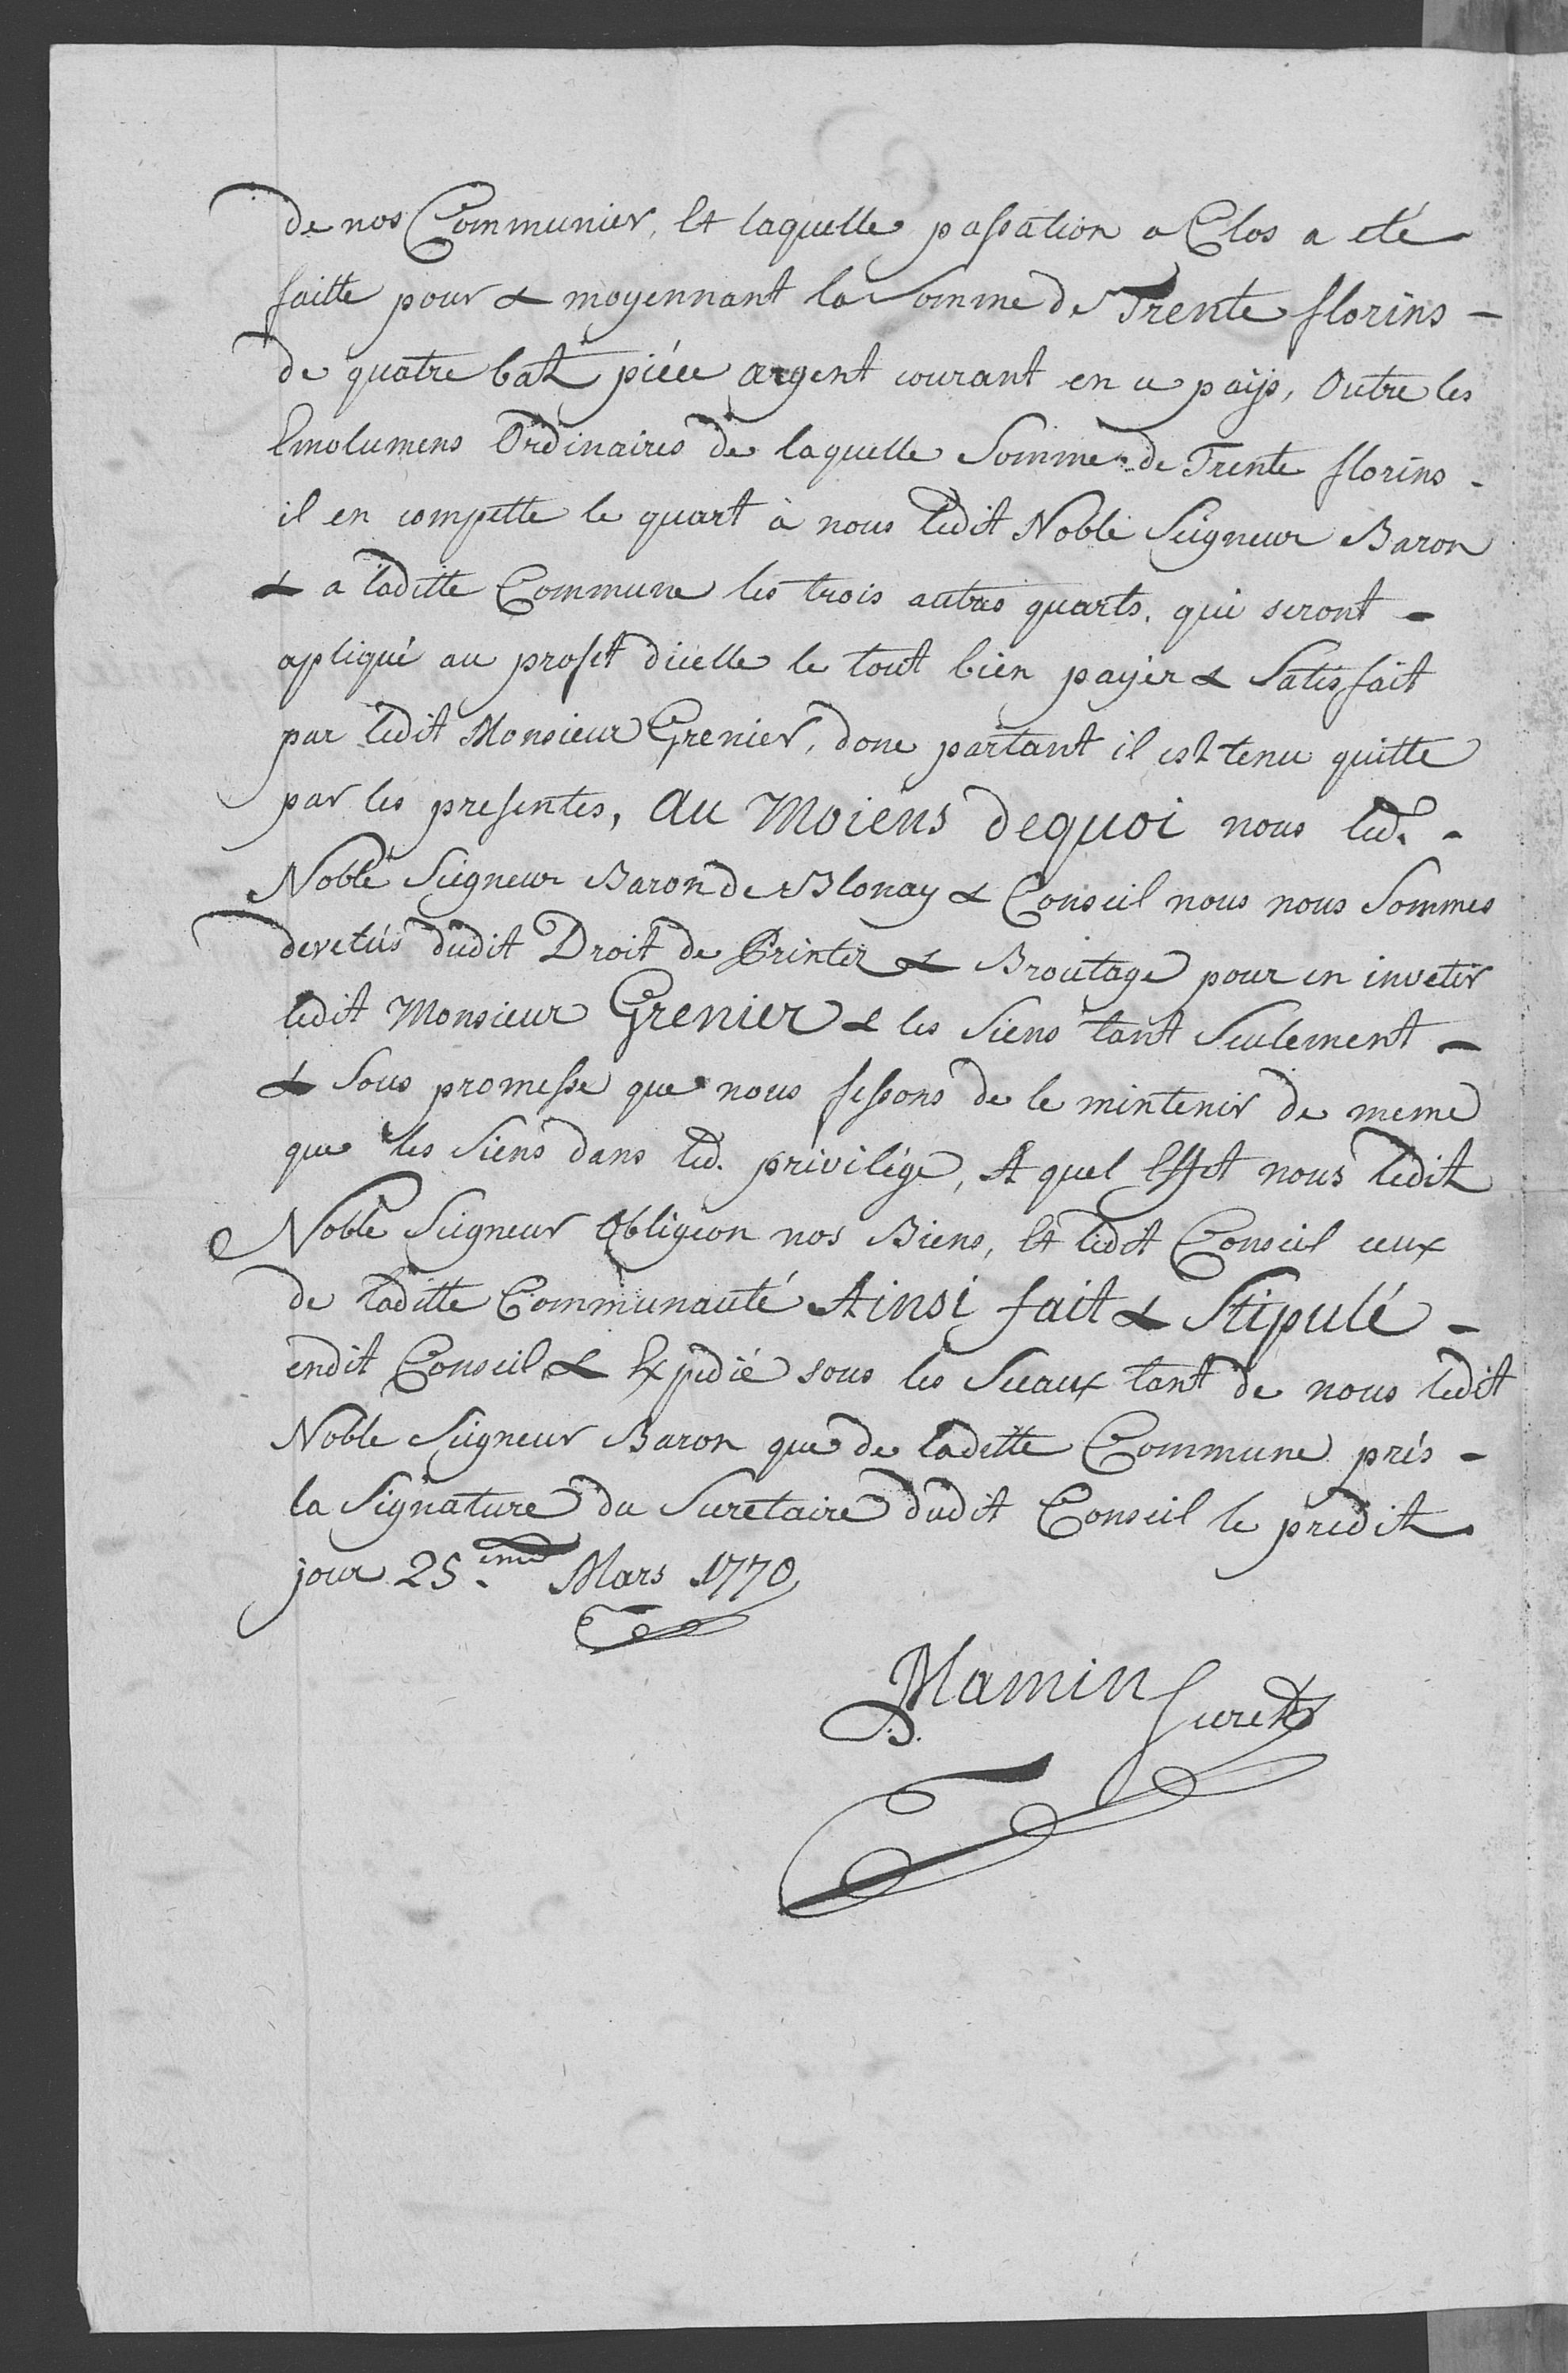 de nos Communier, Et laquelle passation a Clos a eté
faitte pour & moyennant la Somme de Trente florins -
de quatre batz piéce argent courant en ce païs, Outre les
Emolumens Ordinaires de laquelle Somme de Trente florins -
il en compette le quart à nous ledit Noble Seigneur Baron
& a laditte Commune les trois autres quarts, qui seront -
apliqué au profit dicelle le tout bien payér & Satisfait
par ledit Monsieur Grenier, donc partant il est tenu quitte
par les presentes, Au Moiens dequoi nous led. -
Noble Seigneur Baron de Blonay & Conseil nous nous Sommes
devetus dudit Droit de Printer & Broutage pour en invetir
ledit Monsieur Grenier & les Siens tant Seulement -
& Sous promesse que nous fessons de le mintenir de meme
que les Siens dans led. privilége, A quel Effet nous ledit
Noble Seigneur Obligeon nos Biens, Et ledit Conseil ceux
de laditte Communauté Ainsi fait & Stipulé -
endit Conseil & Expedié sous les Sceaux tant de nous ledit
Noble Seigneur Baron que de laditte Commune prés -
la Signature du Secretaire dudit Conseil le predit
jour 25.eme Mars 1770
Mamin Secret